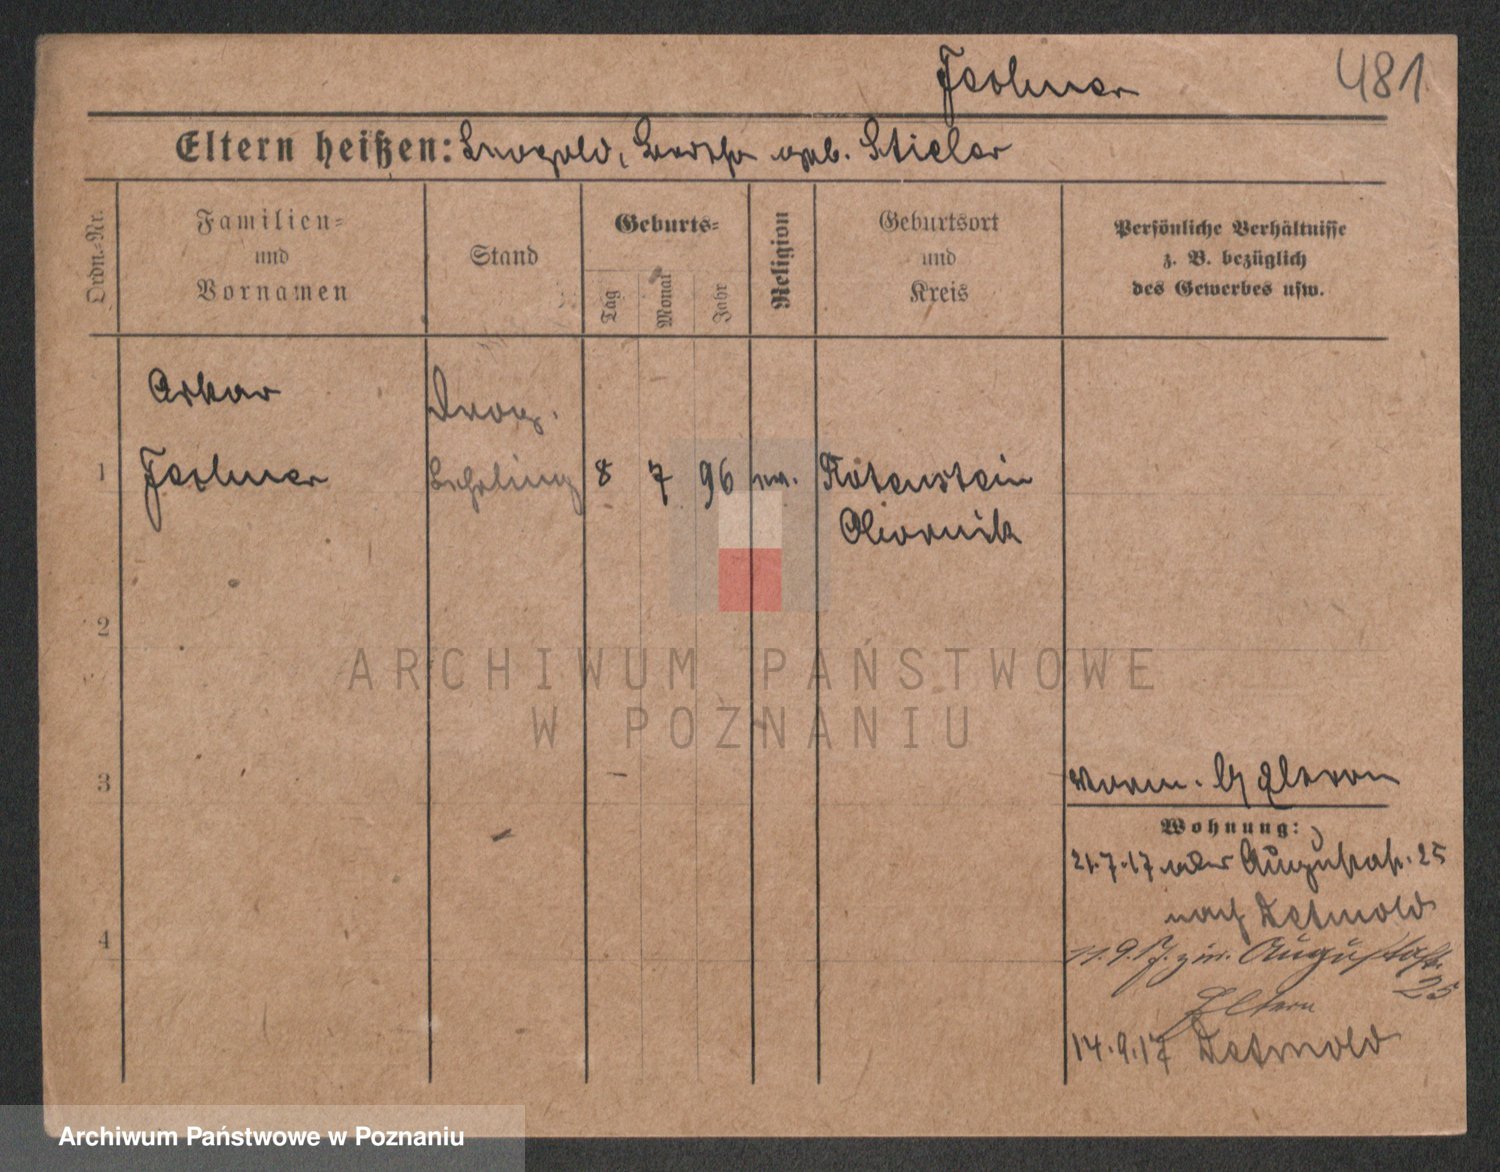 Fechner
481
Eltern heißen: Leopold, Bertha geb. Stieler
Ordn.-Nr.
Familien-
und
Vornamen
Stand
Geburts-
Tag
Monat
Jahr
Religion
Geburtsort
und
Kreis
Persönliche Verhältnisse
z. B. bezüglich
des Gewerbes usw.
Oskar
Drog.
1 Fechner Lehrling 8 7 96 ev. Rotenstein
Obornik
2
ARCHIWUM PAŃSTWOWE
W POZNANIU
3
vorm. b/ Eltern
Wohnung:
21.7.17 Augustastr. 25
nach Detmold
4
11.9.17. zur. Augustastr.
25
Eltern
14.9.17 Detmold
Archiwum Państwowe w Poznaniu